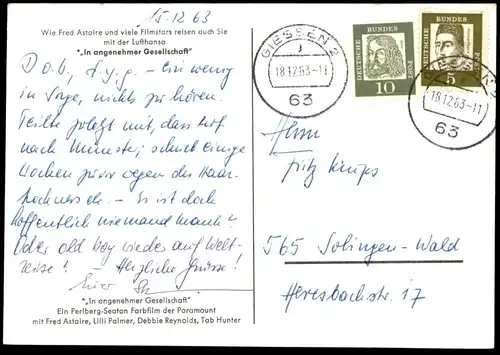 15.12.63
Wie Fred Astaire und viele Filmstars reisen auch Sie
mit der Lufthansa
"In angenehmer Gesellschaft"
D.o.b., d.y.p. – Ein wenig
in Sorge, nichts zu hören.
Teilte zuletzt mit, dass
nach Münster, schrieb einige
Wochen zuvor wegen des Haar-
– Es ist doch
hoffentlich niemand krank?
Oder old boy wieder auf Welt-
reise? – Herzliche Grüsse!
"In angenehmer Gesellschaft"
Ein Perlberg-Seaton Farbfilm der Paramount
mit Fred Astaire, Lilli Palmer, Debbie Reynolds, Tab Hunter
GIESSEN 2
j
18.12.63-11
63
DEUTSCHE BUNDES POST
10
DEUTSCHE BUNDES POST
5
GIESSEN 2
18.12.63-11
63
Herrn
Fritz
565 Solingen-Wald
Heresbachstr. 17